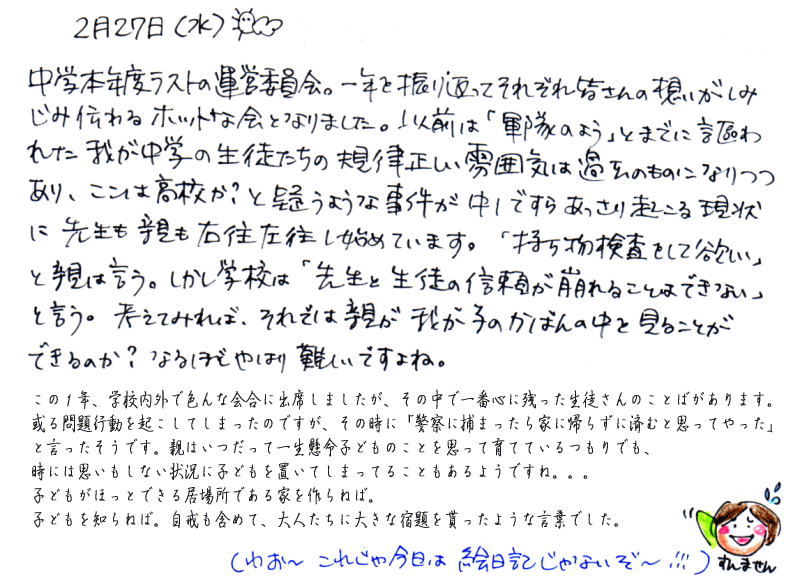 2月27日(水)
中学本年度ラストの運営委員会。一年を振り返ってそれぞれ皆さんの想いがしみ
じみ伝わるホットな会となりました。以前は「軍隊のよう」とまでに謳わ
れた我が中学の生徒たちの規律正しい雰囲気は過去のものになりつつ
あり、ここは高校か?と疑うような事件が中1ですらあっさり起こる現状
に先生も親も右往左往し始めています。「持ち物検査をして欲しい」
と親は言う。しかし学校は「先生と生徒の信頼が崩れることはできない」
と言う。考えてみれば、それでは親が我が子のかばんの中を見ることが
できるのか?なるほどやはり難しいですよね。
この1年、学校内外で色んな会合に出席しましたが、その中で一番心に残った生徒さんのことばがあります。
或る問題行動を起こしてしまったのですが、その時に「警察に捕まったら家に帰らずに済むと思ってやった」
と言ったそうです。親はいつだって一生懸命子どものことを思って育てているつもりでも、
時には思いもしない状況に子どもを置いてしまってることもあるようですね。。。
子どもがほっとできる居場所である家を作らねば。
子どもを知らねば。自戒も含めて、大人たちに大きな宿題を貰ったような言葉でした。
(わお〜 これじゃ今日は 絵日記じゃないぞ〜!!!)
すんません